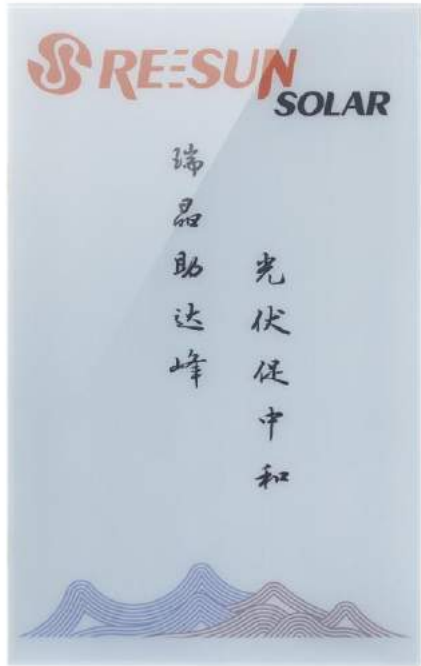 REESUN
SOLAR
瑞晶助达峰
光伏促中和